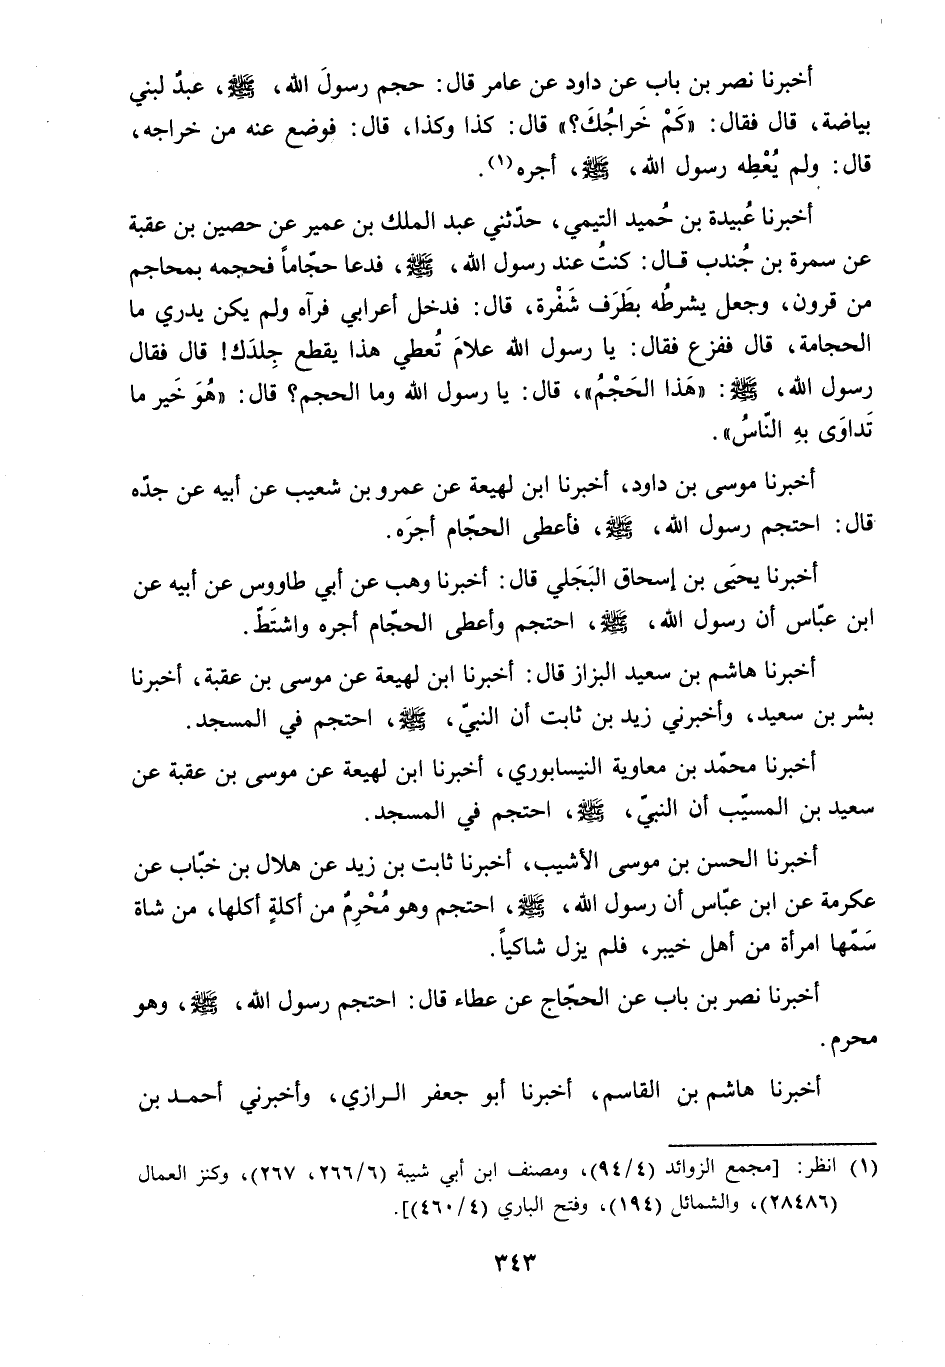 أخبرنا نصر بن باب عن داود عن عامر قال: حجم رسولَ الله، ﷺ، عبدٌ لبني
بياضة، قال فقال: «كَمْ خَراجُكَ؟» قال: كذا وكذا، قال: فوضع عنه من خراجه،
قال: ولم يُعْطِه رسول الله، ﷺ، أجره(١).
أخبرنا عُبيدة بن حُميد التيمي، حدّثني عبد الملك بن عمير عن حصين بن عقبة
عن سمرة بن جُندب قال: كنتُ عند رسول الله، ﷺ، فدعا حجّاماً فحجمه بمحاجم
من قرون، وجعل يشرطُه بطَرَف شَفْرة، قال: فدخل أعرابي فرآه ولم يكن يدري ما
الحجامة، قال ففزع فقال: يا رسول الله علامَ تُعطي هذا يقطع جِلدَك! قال فقال
رسول الله، ﷺ: «هَذا الحَجْمُ»، قال: يا رسول الله وما الحجم؟ قال: «هُوَ خَير ما
تَداوَى بهِ النّاسُ».
أخبرنا موسى بن داود، أخبرنا ابن لهيعة عن عمرو بن شعيب عن أبيه عن جدّه
قال: احتجم رسول الله، ﷺ، فأعطى الحجّام أجرَه.
أخبرنا يحيَى بن إسحاق البَجَلي قال: أخبرنا وهب عن أبي طاووس عن أبيه عن
ابن عبّاس أن رسول الله، ﷺ، احتجم وأعطى الحجّام أجره واشتَطّ.
أخبرنا هاشم بن سعيد البزاز قال: أخبرنا ابن لهيعة عن موسى بن عقبة، أخبرنا
بشر بن سعيد، وأخبرني زيد بن ثابت أن النبيّ، ﷺ، احتجم في المسجد.
أخبرنا محمّد بن معاوية النيسابوري، أخبرنا ابن لهيعة عن موسى بن عقبة عن
سعيد بن المسيّب أن النبيّ، ﷺ، احتجم في المسجد.
أخبرنا الحسن بن موسى الأشيب، أخبرنا ثابت بن زيد عن هلال بن خبّاب عن
عكرمة عن ابن عبّاس أن رسول الله، ﷺ، احتجم وهو مُحْرِمٌ من أكلةٍ أكلها، من شاة
سَمّها امرأة من أهل خيبر، فلم يزل شاكياً.
أخبرنا نصر بن باب عن الحجّاج عن عطاء قال: احتجم رسول الله، ﷺ، وهو
محرم.
أخبرنا هاشم بن القاسم، أخبرنا أبو جعفر الرازي، وأخبرني أحمد بن
(١) انظر: [مجمع الزوائد (٩٤/٤)، ومصنف ابن أبي شيبة (٢٦٦/٦، ٢٦٧)، وكنز العمال
(٢٨٤٨٦)، والشمائل (١٩٤)، وفتح الباري (٤٦٠/٤)].
٣٤٣